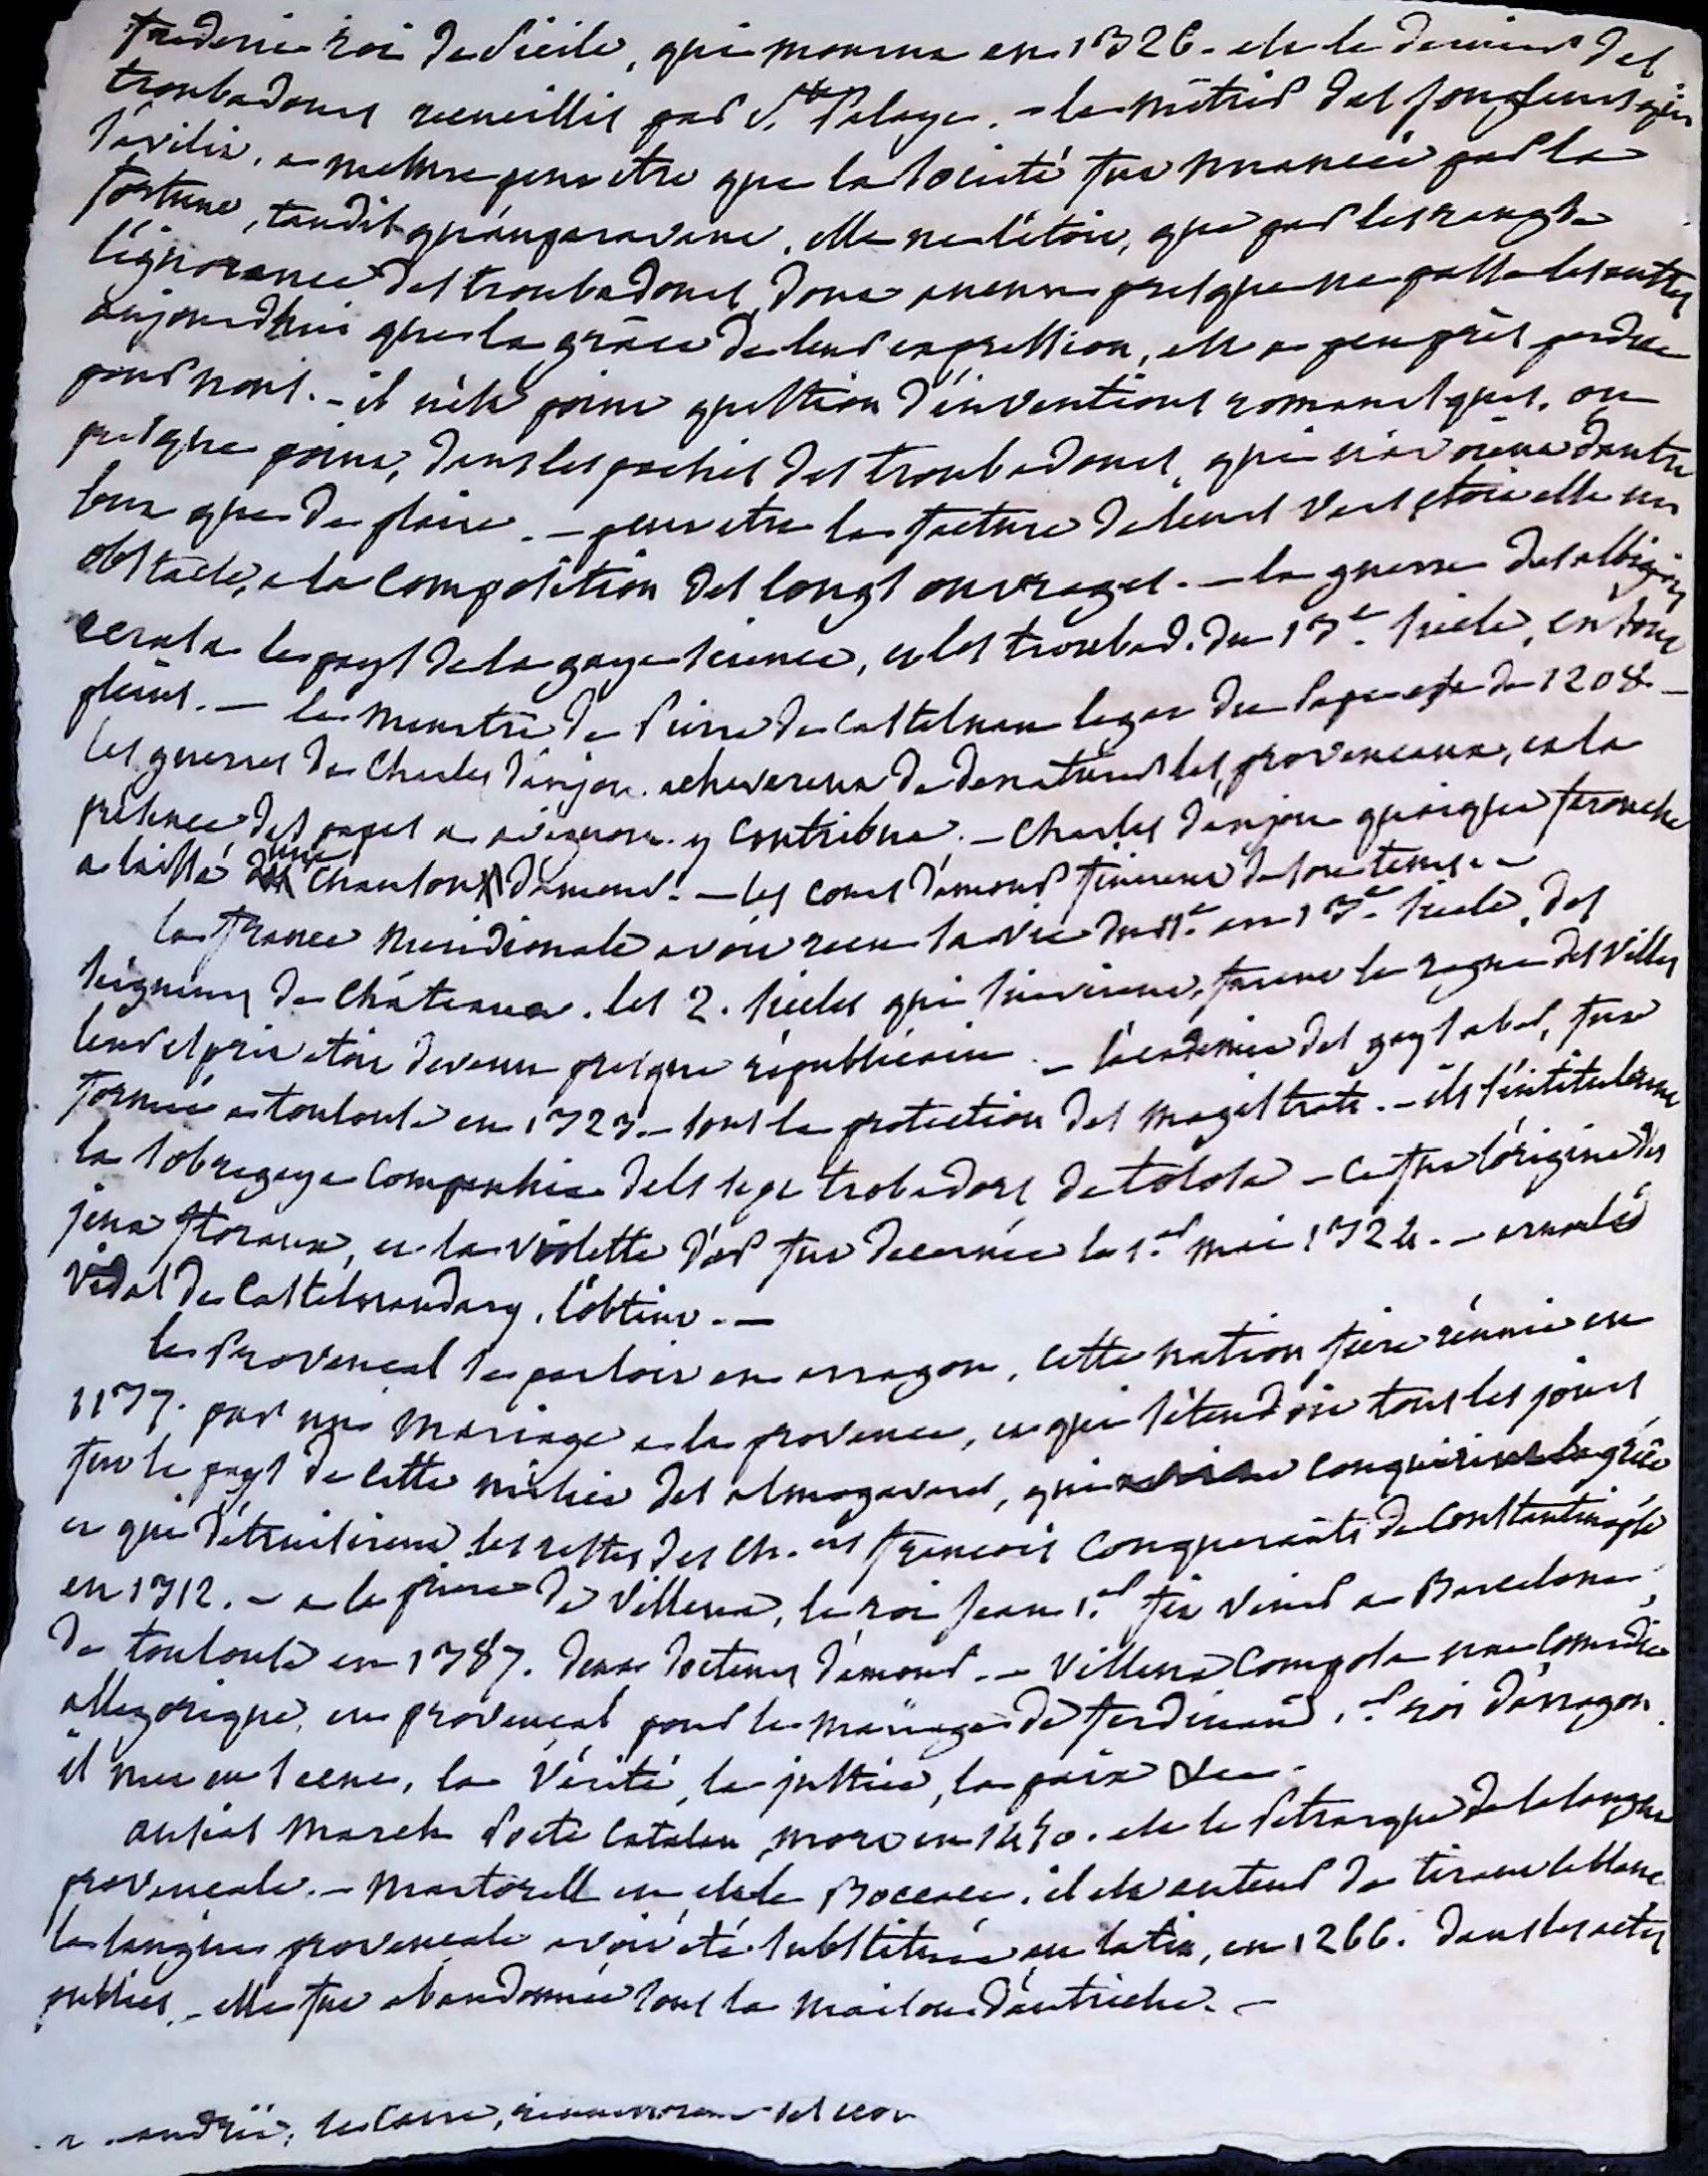 frederic roi de Sicile, qui mourut en 1326. est le dernier des
troubadours recueillis par Ste Palaye. - le métier des jongleurs s'en
s'avilit, a mesure peut etre que la société fut nuancée par la
fortune, tandis qu'auparavant, elle ne l'étoit, que par les rangs
l'ignorance des troubadours, dont aucun presque ne passe les autres
aujourdhui que la grâce de leur expression, est a peu près perdue
pour nous. - il n'est point question d'inventions romanesques, ou
presque point, dans les poesies des troubadours, qui n'avoient dautre
but que de plaire. - peut etre la facture de leurs vers étoit elle un
obstacle, a la composition des longs ouvrages. - la guerre des albigeois
ecrasa le pays de la gaye science, et les troubad. du 13e. siècle, en sont
pleins. - le meurtre de Pierre de Castelnau legat du Pape est de 1208 -
les guerres de Charles d'anjou acheverent de denaturer les provencaux, et la
présence des papes a avignon y contribua. - Charles d'anjou quoique farouche
a laissé une chanson d'amour. - les cours d'amour finirent de son tems. -
la france meridionale avoit recu la vie du 11e. au 13e. siecle, des
seigneurs de châteaux. les 2. siecles qui suivirent, furent le regne des villes
leur esprit etoit devenu presque républicain. - l'académie del gay saber, fut
formée a toulouse en 1323. - sous la protection des magistrats. - ils s'intitulerent
la sobregaya companhia dels sept trobadors de tolosa - ce fut l'origine des
jeux floraux, et la violette d'or fut decernée le 1er mai 1324. - arnauld
vidal de Castelnaudary, l'obtint. -
le Provencal se parloit en arragon, cette nation fiere réunie en
1137. par un mariage a la provence, et qui s'étendoit tous les jours
fut le pays de cette milice des almogavares, qui conquirirent la grèce
et qui détruisirent les restes des ch.ers francois conquerants de Constantinople
en 1312. - a la priere de Villena, le roi Jean 1.er fit venir a Barcelone,
de toulouse en 1387. deux docteurs d'amour. - Villena composa une comédie
allegorique, en provencal pour le mariage de ferdinand 1.er roi d'arragon.
il mit en scene, la Vérité, la justice, la paix &c.
ausias March Poete Catalan, mort en 1450. est le Petrarque de la langue
provencale. - Martorell en est le Boccace. il est auteur de tirant le blanc.
la langue provencale avoit été substituée au latin, en 1266. dans les actes
publics. - elle fut abandonnée sous la maison d'autriche. -